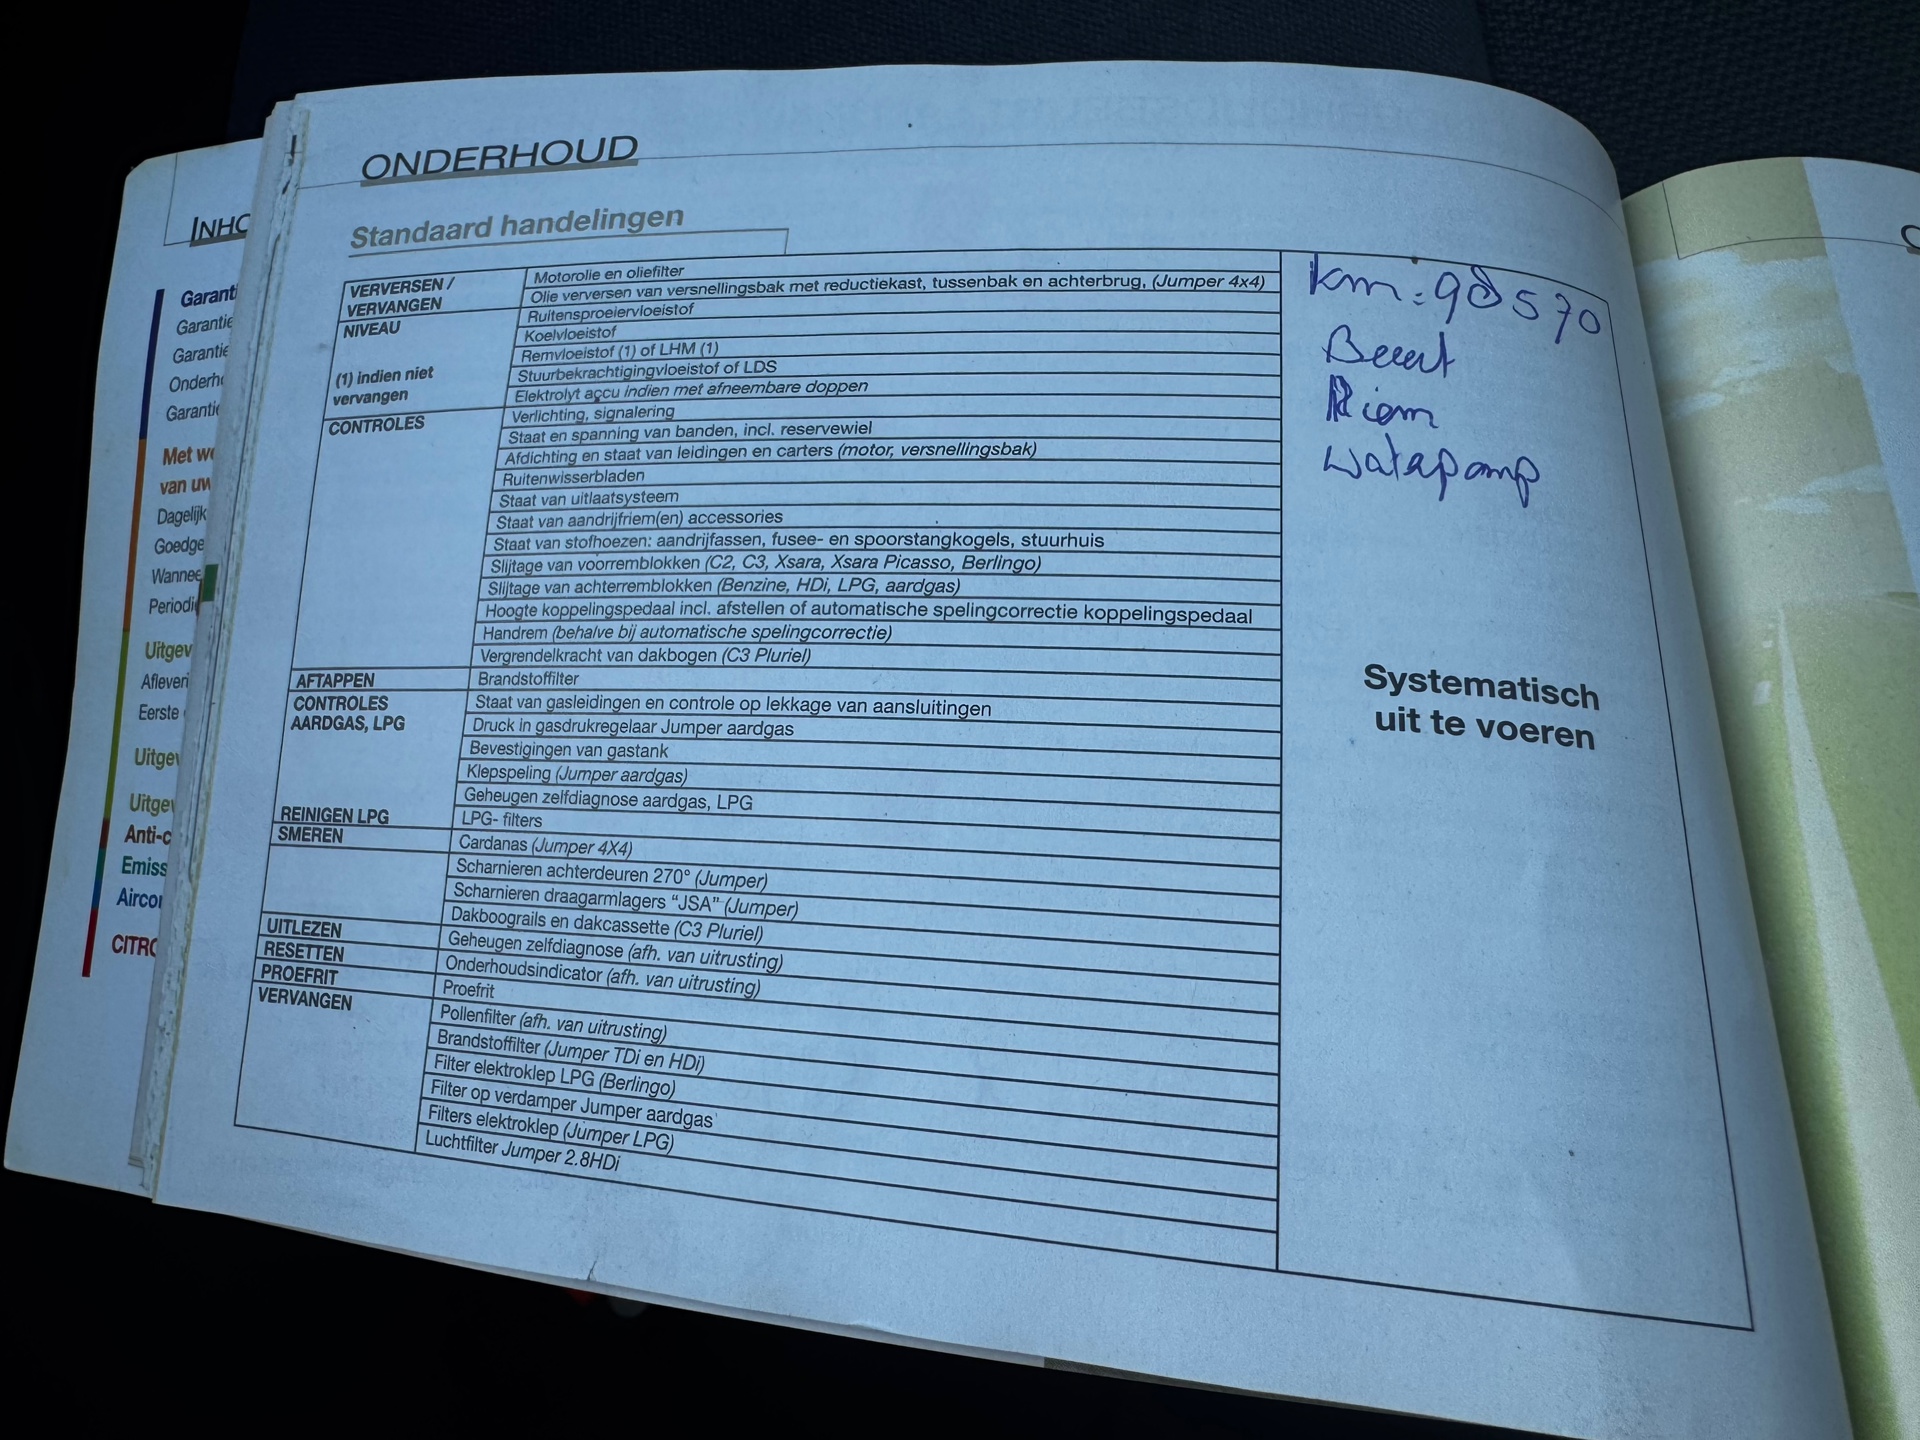 INHO
Garanti
Garantie
Garantie
Onderh
Garantie
Met we
van uw
Dagelijk
Goedge
Wannee
Periodi
Uitgev
Afleveri
Eerste
Uitgev
Uitgev
Anti-c
Emiss
Airco
CITRO
ONDERHOUD
Standaard handelingen
VERVERSEN / VERVANGEN
Motorolie en oliefilter
Olie verversen van versnellingsbak met reductiekast, tussenbak en achterbrug, (Jumper 4x4)
NIVEAU
Ruitensproeiervloeistof
Koelvloeistof
Remvloeistof (1) of LHM (1)
(1) indien niet vervangen
Stuurbekrachtigingvloeistof of LDS
Elektrolyt accu indien met afneembare doppen
CONTROLES
Verlichting, signalering
Staat en spanning van banden, incl. reservewiel
Afdichting en staat van leidingen en carters (motor, versnellingsbak)
Ruitenwisserbladen
Staat van uitlaatsysteem
Staat van aandrijfriem(en) accessories
Staat van stofhoezen: aandrijfassen, fusee- en spoorstangkogels, stuurhuis
Slijtage van voorremblokken (C2, C3, Xsara, Xsara Picasso, Berlingo)
Slijtage van achterremblokken (Benzine, HDi, LPG, aardgas)
Hoogte koppelingspedaal incl. afstellen of automatische spelingcorrectie koppelingspedaal
Handrem (behalve bij automatische spelingcorrectie)
Vergrendelkracht van dakbogen (C3 Pluriel)
AFTAPPEN
Brandstoffilter
CONTROLES AARDGAS, LPG
Staat van gasleidingen en controle op lekkage van aansluitingen
Druck in gasdrukregelaar Jumper aardgas
Bevestigingen van gastank
Klepspeling (Jumper aardgas)
Geheugen zelfdiagnose aardgas, LPG
REINIGEN LPG
LPG- filters
SMEREN
Cardanas (Jumper 4X4)
Scharnieren achterdeuren 270° (Jumper)
Scharnieren draagarmlagers "JSA" (Jumper)
Dakboograils en dakcassette (C3 Pluriel)
UITLEZEN
Geheugen zelfdiagnose (afh. van uitrusting)
RESETTEN
Onderhoudsindicator (afh. van uitrusting)
PROEFRIT
Proefrit
VERVANGEN
Pollenfilter (afh. van uitrusting)
Brandstoffilter (Jumper TDi en HDi)
Filter elektroklep LPG (Berlingo)
Filter op verdamper Jumper aardgas
Filters elektroklep (Jumper LPG)
Luchtfilter Jumper 2.8HDi
km: 98570
Beurt
Riem
Waterpomp
Systematisch
uit te voeren